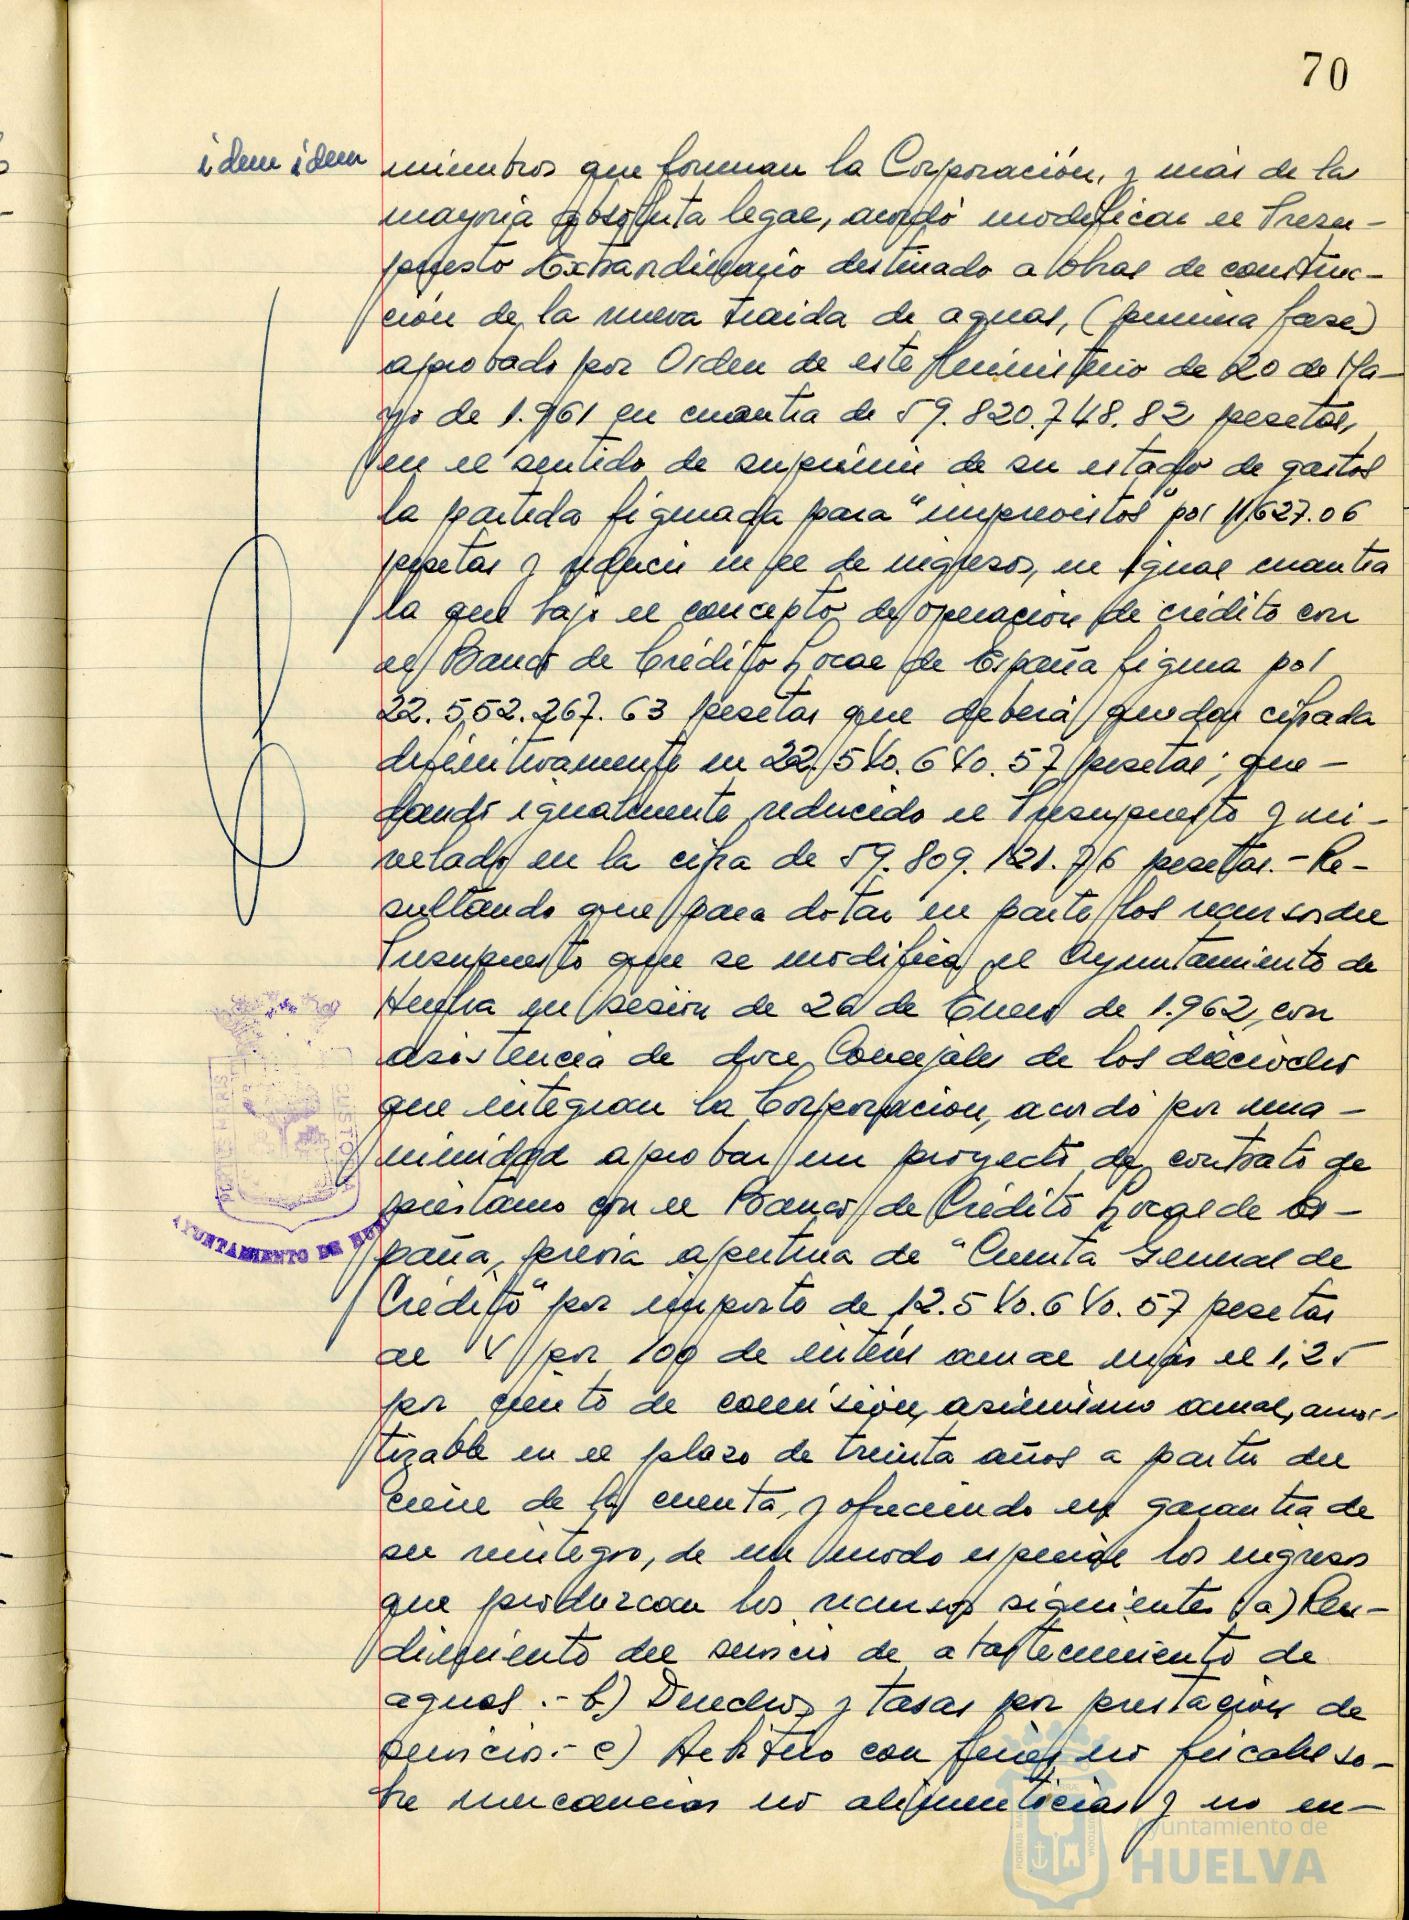 70
idem idem
miembros que forman la Corporación, y más de la
mayoria absoluta legal, acordó modificar el Presu-
puesto Extraordinario destinado a obras de construc-
ción de la nueva traida de aguas, (primera fase)
aprobado por Orden de este Ministerio de 20 de Ma-
yo de 1.961 en cuantia de 59.820.748.82 pesetas,
en el sentido de suprimir de su estado de gastos
la partida figurada para "imprevistos" por 11.627.06
pesetas y reducir en el de ingresos, en igual cuantia
la que bajo el concepto de operación de crédito con
el Banco de Crédito Local de España figura por
22.552.267.63 pesetas que deberá quedar cifrada
definitivamente en 22.540.640.57 pesetas; que-
dando igualmente reducido el Presupuesto y ni-
velado en la cifra de 59.809.121.76 pesetas.- Re-
sultando que para dotar en parte los recursos del
Presupuesto que se modifica, el Ayuntamiento de
Huelva en sesión de 26 de Enero de 1.962, con
asistencia de doce Concejales de los dieciocho
que integran la Corporación, acordó por una-
nimidad aprobar un proyecto de contrato de
préstamo con el Banco de Crédito Local de Es-
paña, previa apertura de "Cuenta General de
Crédito" por importe de 12.540.640.57 pesetas
al 4 por 100 de interés anual más el 1,25
por ciento de comisión, asimismo anual, amor-
tizable en el plazo de treinta años a partir del
cierre de la cuenta, y ofreciendo en garantia de
su reintegro, de un modo especial los ingresos
que produzcan los recursos siguientes: a) Ren-
dimiento del servicio de abastecimiento de
aguas.- b) Derechos y tasas por prestación de
servicios.- c) Arbitrio con fines no fiscales so-
bre mercancias no alimenticias y no en-
PORTUS MARIS
CUSTODIA
AYUNTAMIENTO DE HUEL
Ayuntamiento de
HUELVA